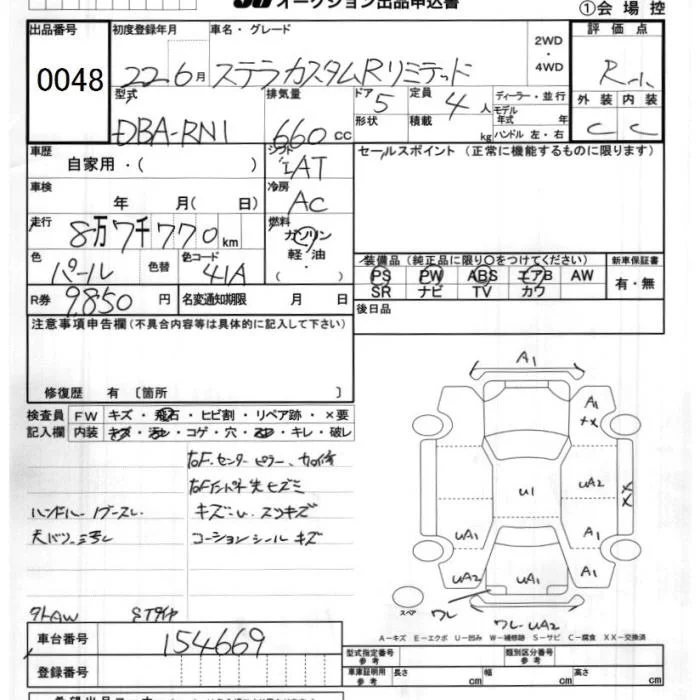 オークション出品申込書
①会場控
出品番号 初度登録年月 車名・グレード 2WD・4WD 評価点
0048 22年6月 ステラカスタムRリミテッド R-1
型式 排気量 ドア 5 定員 4人 ディーラー・並行 外装 内装
DBA-RN1 660cc 形状 積載 kg モデル年式 年 ハンドル 左・右 C C
車歴 シフト セールスポイント（正常に機能するものに限ります）
自家用・（ ） IAT
車検 冷房
年 月（ 日） AC
走行 8万7千770km 燃料 ガソリン
軽油・（ ）
色 パール 色替 色コード 41A
装備品（純正品に限り○をつけてください） 新車保証書
PS PW ABS エアB AW 有・無
SR ナビ TV カワ
R券 9850円 名変通知期限 月 日
後日品
注意事項申告欄（不具合内容等は具体的に記入して下さい）
修復歴 有〔箇所 〕
検査員 FW キズ・飛石・ヒビ割・リペア跡・×要
記入欄 内装 キズ・汚レ・コゲ・穴・スレ・キレ・破レ
右F.センターピラー、加修
キズ・U、スリキズ
コーションシールキズ
社外AW STタイヤ
A1
A1
XX
U1
UA2
XX
UA1
A1
UA2
UA1
A1
スペア
ワレ
ワレ-UA2
A－キズ E－エクボ U－凹み W－補修跡 S－サビ C－腐食 XX－交換済
車台番号 154669
登録番号
型式指定番号 参考 類別区分番号 参考
車庫証明用 参考 長さ cm 幅 cm 高さ cm